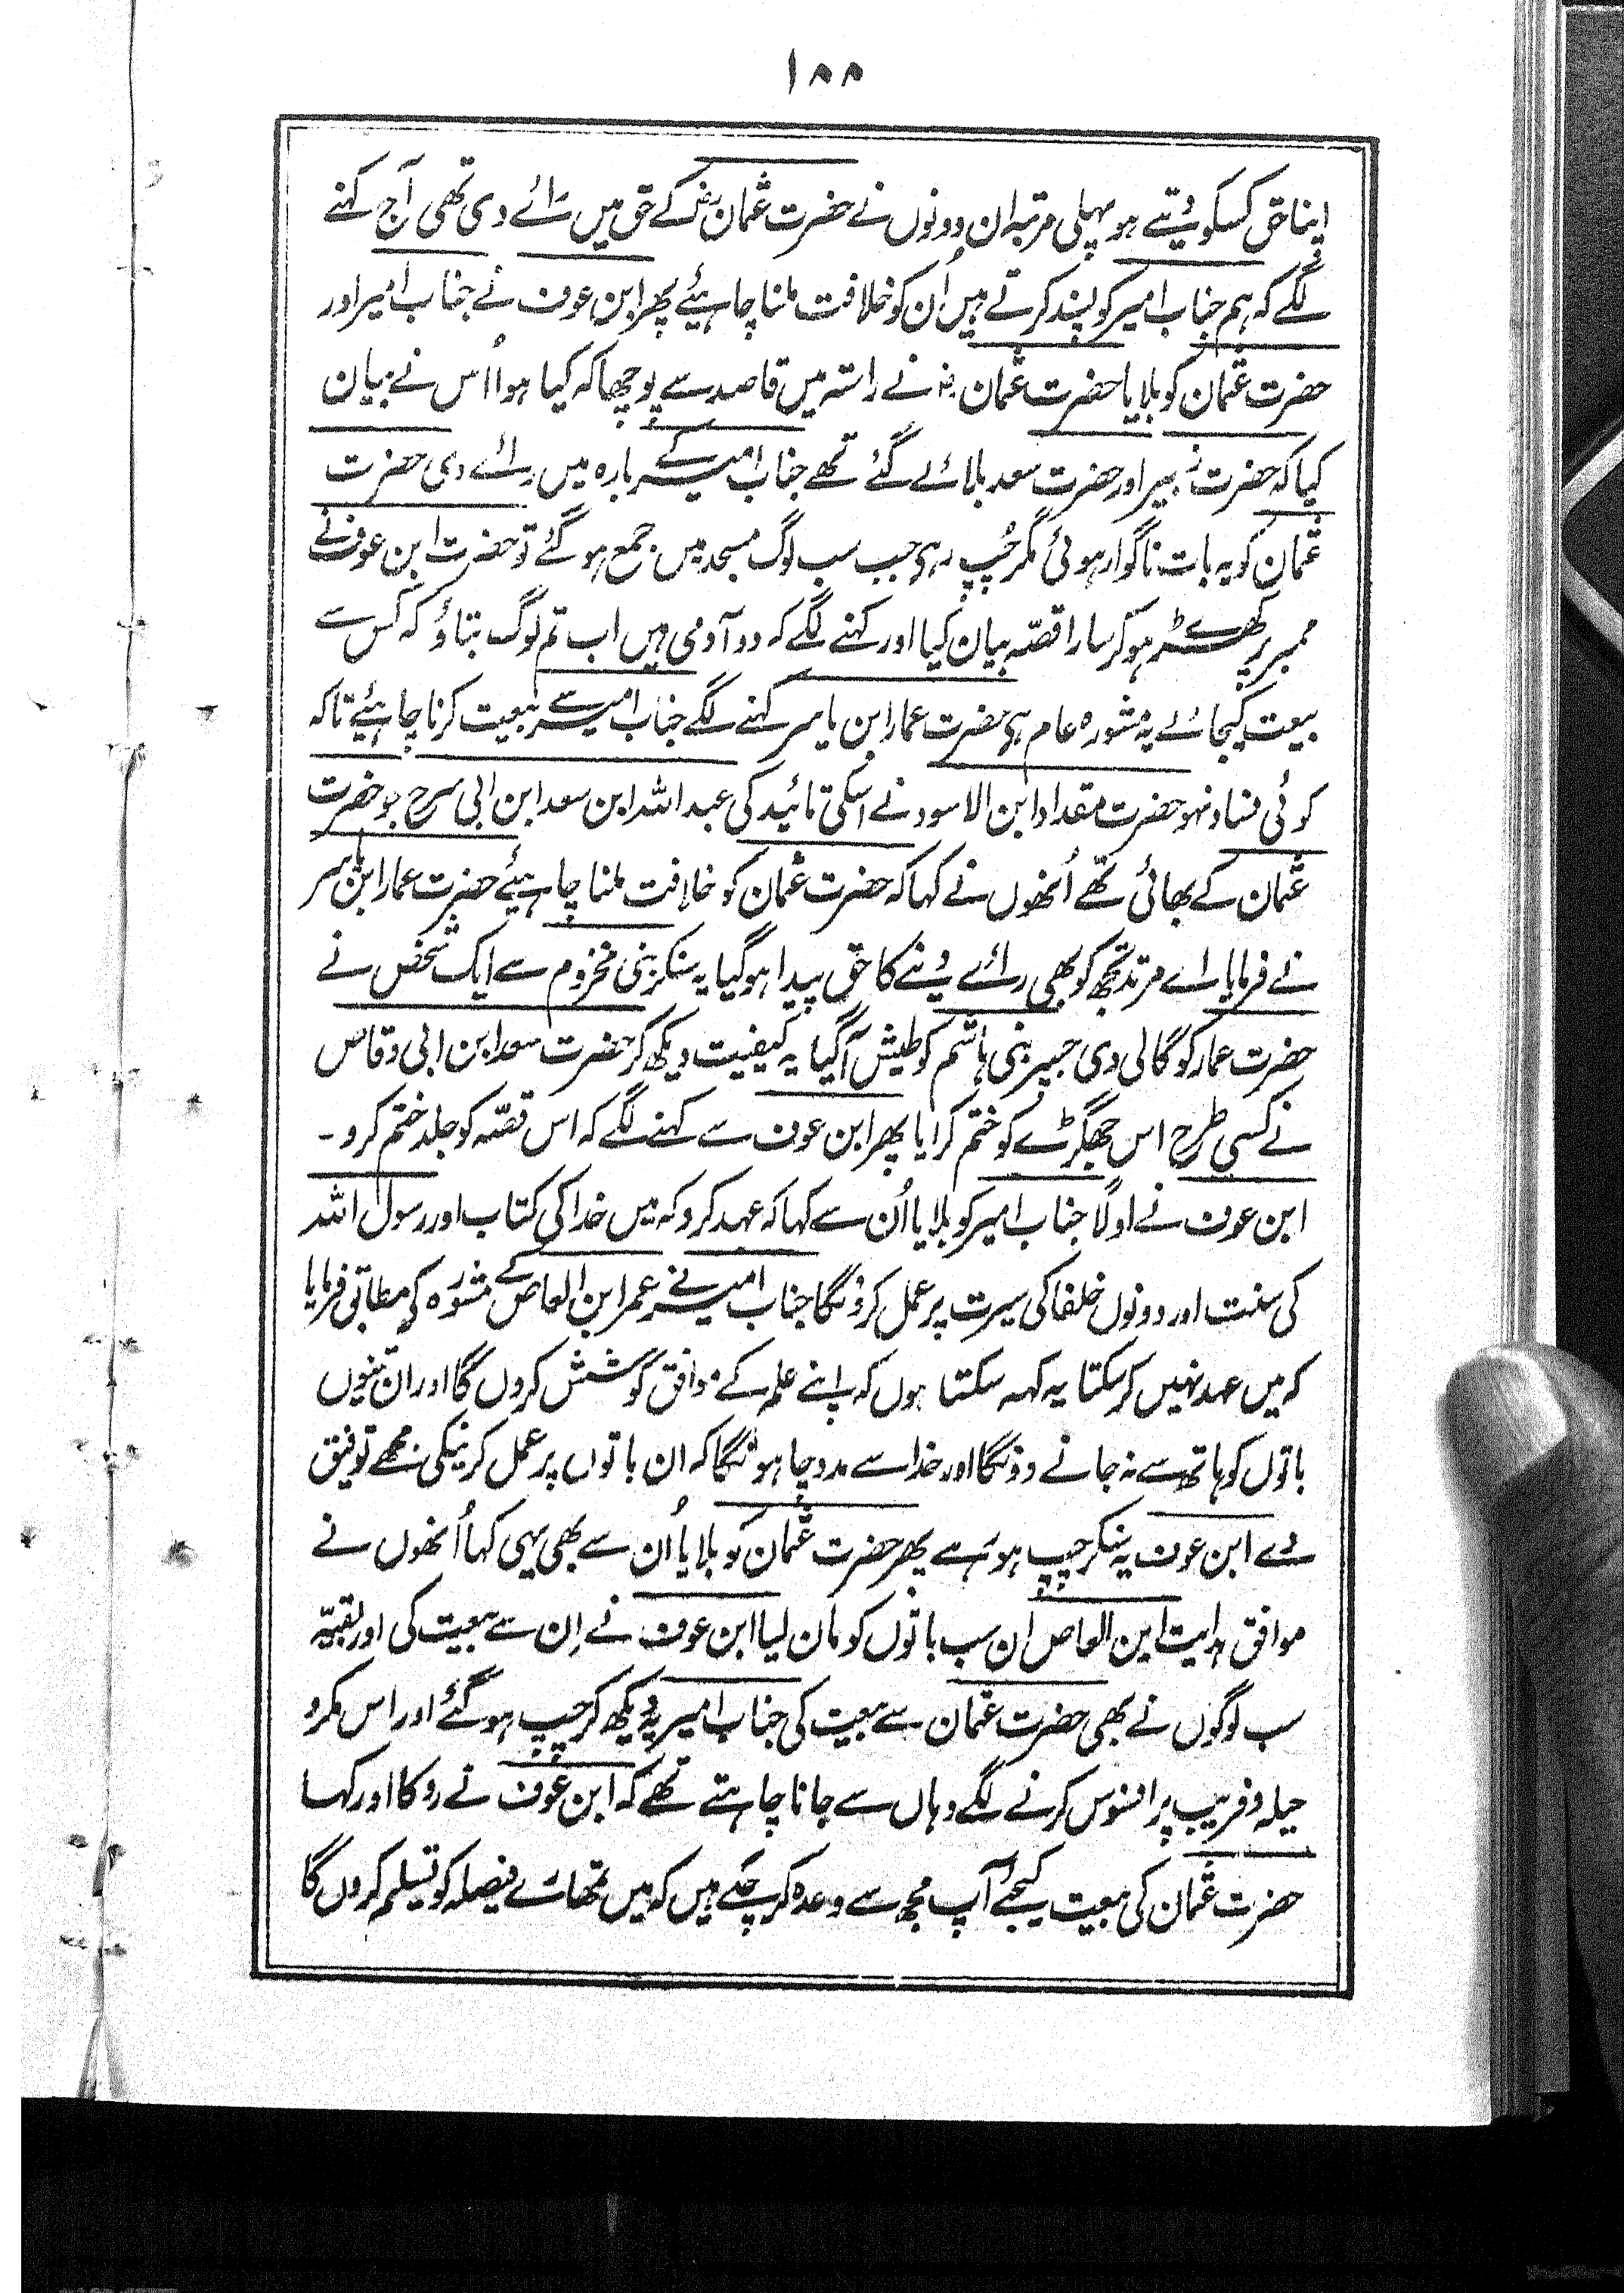 ۱۸۸
اپنا حق کسکو دیتے ہو پہلی مرتبہ ان دونوں نے حضرت عثمان رضؓ کے حق میں رائے دی تھی آج کہنے
لگے کہ ہم جناب امیر کو پسند کرتے ہیں اُن کو خلافت ملنا چاہیئے پھر ابن عوف نے جناب امیر اور
حضرت عثمان کو بلایا حضرت عثمان رضؓ نے راستہ میں قاصد سے پوچھا کہ کیا ہوا اُس نے بیان
کیا کہ حضرت زبیر اور حضرت سعد بلائے گئے تھے جناب امیر کے بارہ میں رائے دی حضرت
عثمان کو یہ بات ناگوار ہوئی مگر چُپ رہی جب سب لوگ مسجد میں جمع ہو گئے تو حضرت ابن عوف نے
ممبر پر کھڑے ہو کر سارا قصّہ بیان کیا اور کہنے لگے کہ دو آدمی ہیں اب تم لوگ بتاؤ کہ کس سے
بیعت کیجائے یہ مشورہ عام ہی حضرت عمار ابن یاسر کہنے لگے جناب امیر سے بیعت کرنا چاہیئے تاکہ
کوئی فساد نہو حضرت مقداد ابن الاسود نے اسکی تائید کی عبد اللہ ابن سعد ابن ابی سرح جو حضرت
عثمان کے بھائی تھے اُنھوں نے کہا کہ حضرت عثمان کو خلافت ملنا چاہیئے حضرت عمار ابن یاسر
نے فرمایا اے مرتد تجھ کو بھی رائے دینے کا حق پیدا ہو گیا یہ سنکر بنی مخزوم سے ایک شخص نے
حضرت عمار کو گالی دی جسپر بنی ہاشم کو طیش آ گیا یہ کیفیت دیکھ کر حضرت سعد ابن ابی وقاص
نے کسی طرح اس جھگڑے کو ختم کرایا پھر ابن عوف سے کہنے لگے کہ اس قصّہ کو جلد ختم کرو۔
ابن عوف نے اولًا جناب امیر کو بلایا اُن سے کہا کہ عہد کرو کہ میں خدا کی کتاب اور رسول اللہ
کی سنت اور دونوں خلفا کی سیرت پر عمل کرونگا جناب امیر نے عمر ابن العاص کے مشورہ کی مطابق فرمایا
کہ میں عہد نہیں کر سکتا یہ کہہ سکتا ہوں کہ اپنے علم کے موافق کوشش کروں گا اور ان تینوں
باتوں کو ہاتھ سے نہ جانے دونگا اور خدا سے مدد چاہونگا کہ ان باتوں پر عمل کرنیکی مجھے توفیق
دے ابن عوف یہ سنکر چپ ہو رہے پھر حضرت عثمان کو بلایا اُن سے بھی یہی کہا اُنھوں نے
موافق ہدایت ابن العاص ان سب باتوں کو مان لیا ابن عوف نے اِن سے بیعت کی اور بقیہّ
سب لوگوں نے بھی حضرت عثمان سے بیعت کی جناب امیر یہ دیکھ کر چپ ہو گئے اور اس مکر و
حیلہ و فریب پر افسوس کرنے لگے وہاں سے جانا چاہتے تھے کہ ابن عوف نے روکا اور کہا
حضرت عثمان کی بیعت کیجئے آپ مجھ سے وعدہ کر چکے ہیں کہ میں تمھارے فیصلہ کو تسلیم کروں گا